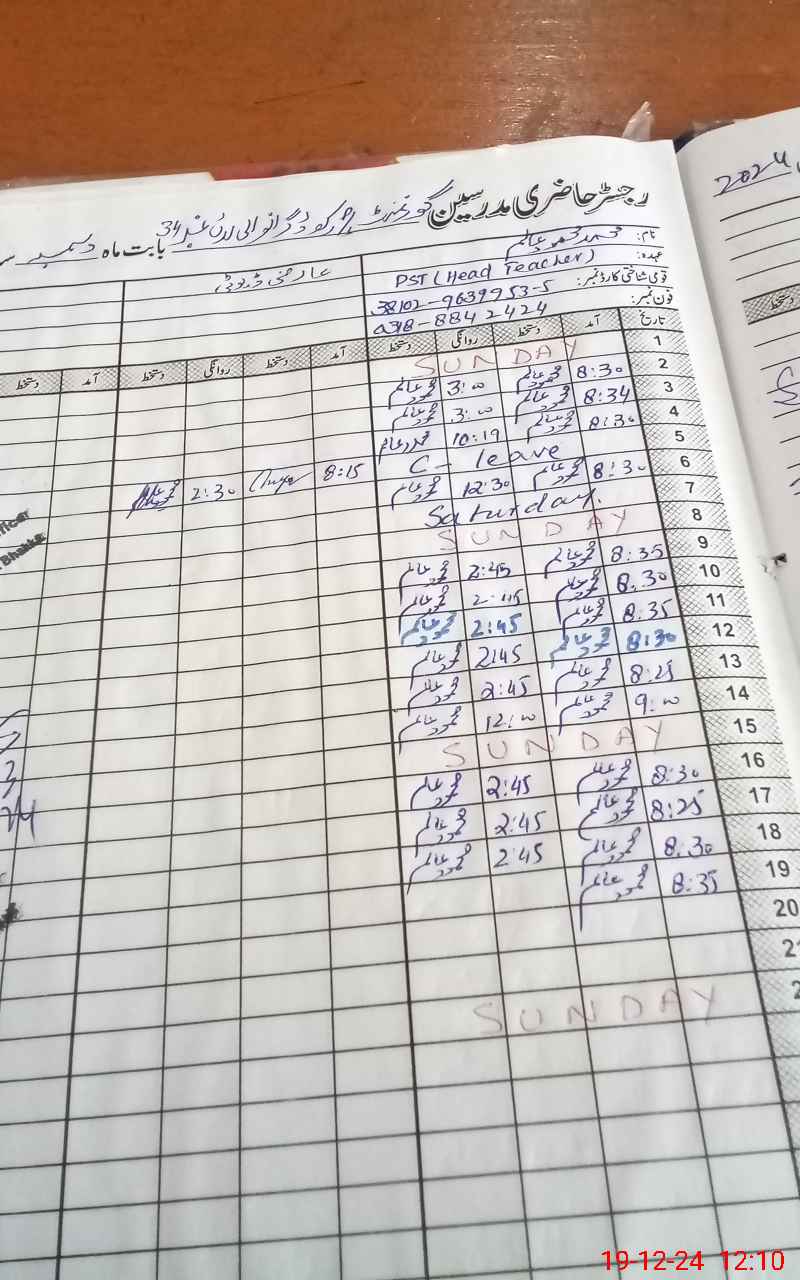 2024
رجسٹر حاضری مدرسین گورنمنٹ
بابت ماہ دسمبر
نام: محمد محمود عالم
عہدہ: PST (Head Teacher)
قومی شناختی کارڈ نمبر: 38102-9639953-5
فون نمبر: 0318-8842424
عارضی ڈیوٹی
تاریخ آمد دستخط روانگی دستخط آمد دستخط روانگی دستخط آمد دستخط
1 SUNDAY
2 8:30 محمود عالم 3:00 محمود عالم
3 8:34 محمود عالم 3:00 محمود عالم
4 8:30 محمود عالم 10:19 محمود عالم 8:15 2:30
5 C- leave
6 8:30 محمود عالم 12:30 محمود عالم
7 Saturday.
8 SUNDAY
9 8:35 محمود عالم 2:45 محمود عالم
10 8:30 محمود عالم 2:45 محمود عالم
11 8:35 محمود عالم 2:45 محمود عالم
12 8:30 محمود عالم 2:45 محمود عالم
13 8:25 محمود عالم 2:45 محمود عالم
14 9:00 محمود عالم 12:00 محمود عالم
15 SUNDAY
16 8:30 محمود عالم 2:45 محمود عالم
17 8:25 محمود عالم 2:45 محمود عالم
18 8:30 محمود عالم 2:45 محمود عالم
19 8:35 محمود عالم
20
SUNDAY
19-12-24 12:10